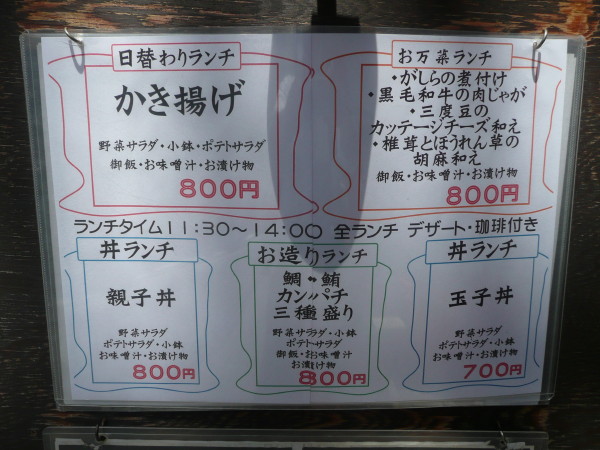 日替わりランチ
かき揚げ
野菜サラダ・小鉢・ポテトサラダ
御飯・お味噌汁・お漬け物
800円
お万菜ランチ
・がしらの煮付け
・黒毛和牛の肉じゃが
・三度豆の
カッテージチーズ和え
・椎茸とほうれん草の
胡麻和え
御飯・お味噌汁・お漬け物
800円
ランチタイム11:30〜14:00 全ランチ デザート・珈琲付き
丼ランチ
親子丼
野菜サラダ
ポテトサラダ・小鉢
お味噌汁・お漬け物
800円
お造りランチ
鯛・鮪
カンパチ
三種盛り
野菜サラダ・小鉢
ポテトサラダ
御飯・お味噌汁
お漬け物
800円
丼ランチ
玉子丼
野菜サラダ
ポテトサラダ・小鉢
お味噌汁・お漬け物
700円